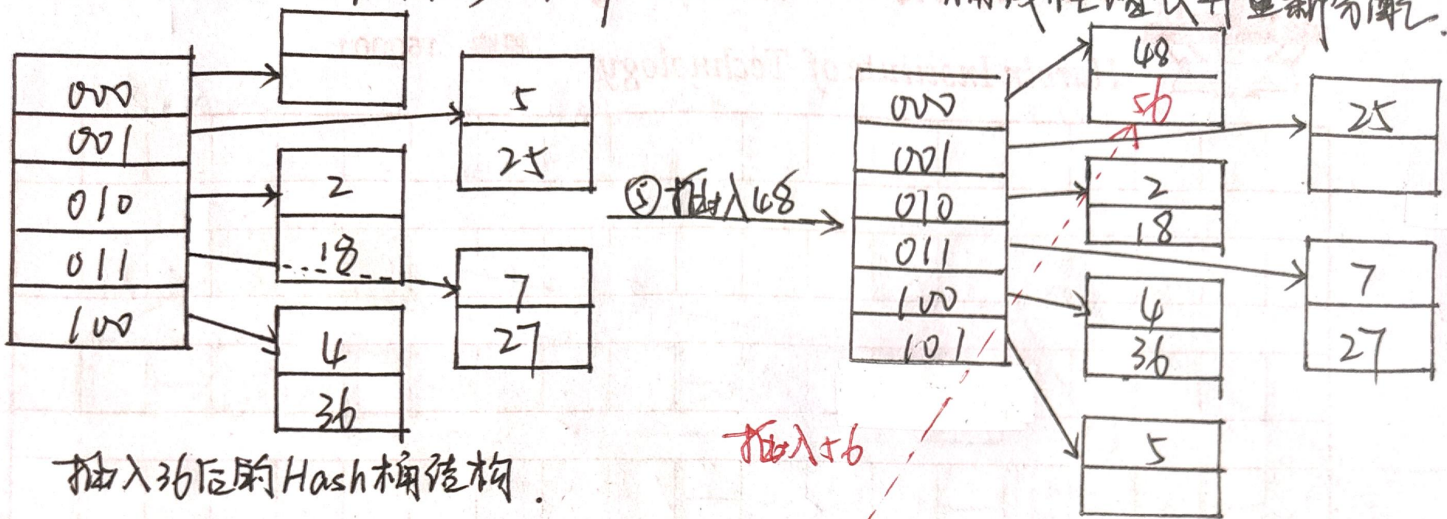 重新分配.
000
001
010
011
100
5
25
2
18
7
27
4
36
⑤插入48
000
001
010
011
100
101
48
56
25
2
18
7
27
4
36
5
插入56
插入36后的Hash桶结构.